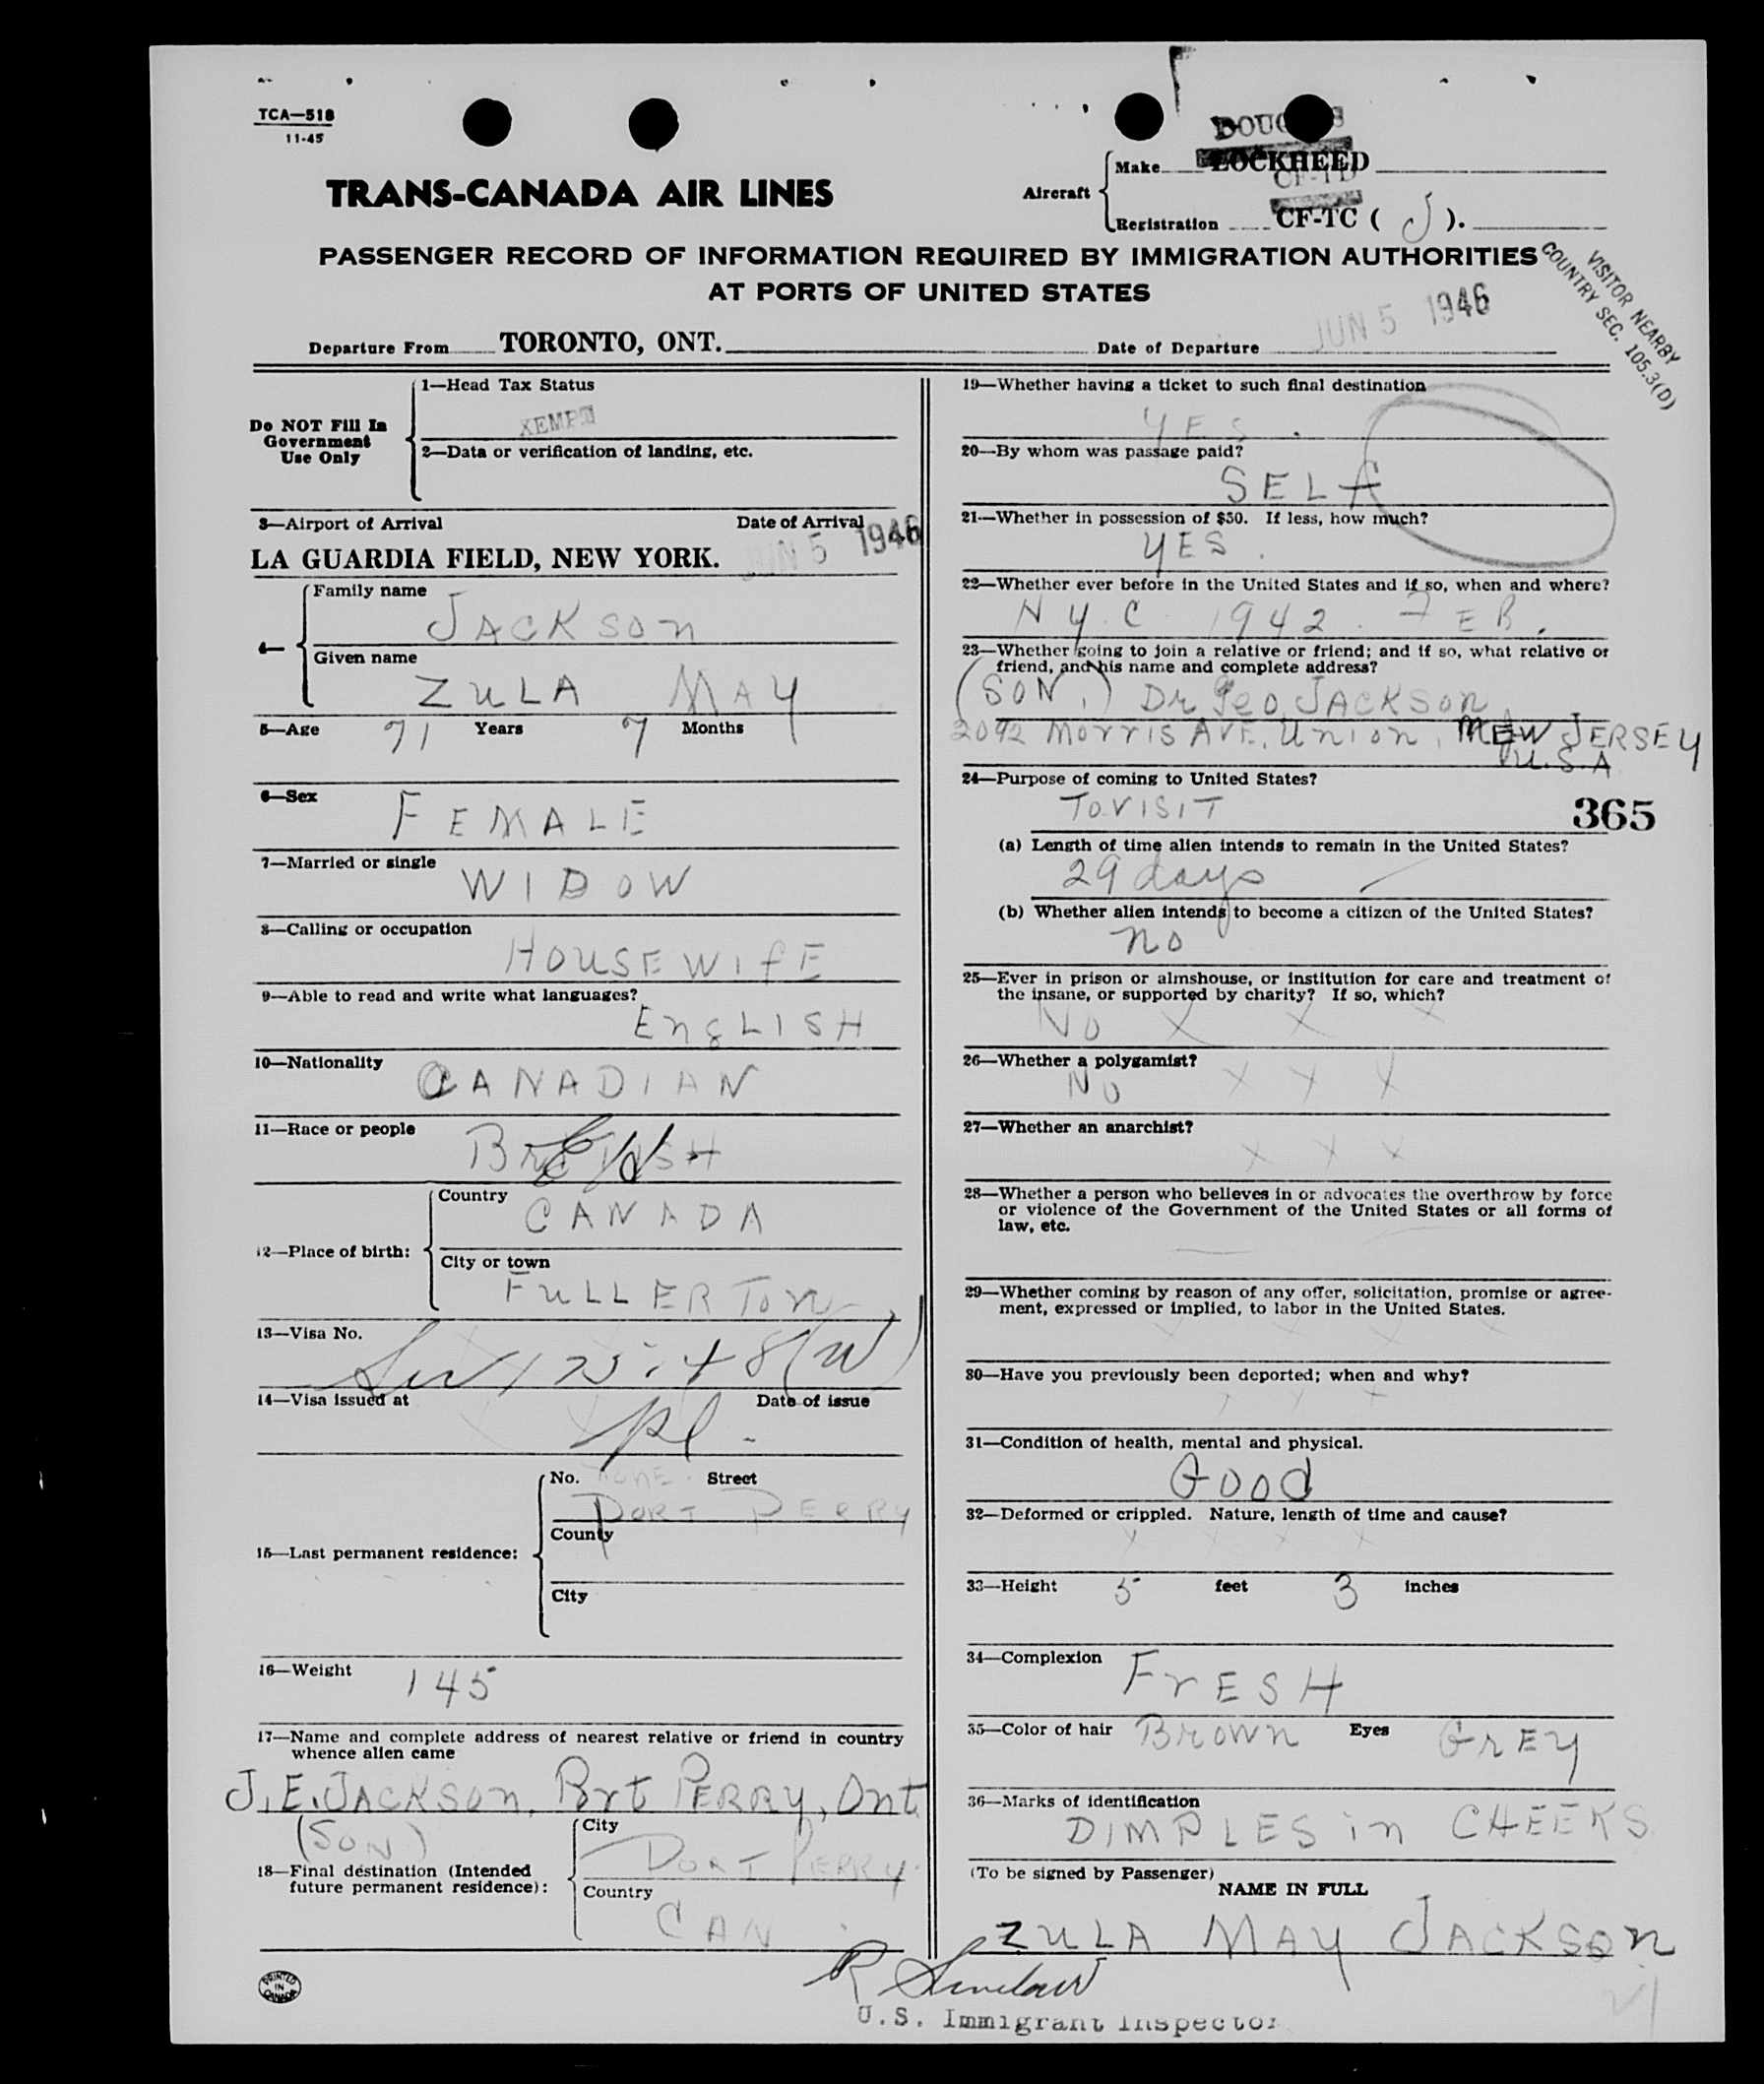 TCA—518
11-45
DOUGLAS
TRANS-CANADA AIR LINES
Aircraft
Make LOCKHEED
CF-TD
Registration CF-TC ( J ).
PASSENGER RECORD OF INFORMATION REQUIRED BY IMMIGRATION AUTHORITIES
AT PORTS OF UNITED STATES
VISITOR NEARBY
COUNTRY SEC. 105.3(D)
Departure From TORONTO, ONT. Date of Departure JUN 5 1946
Do NOT Fill In
Government
Use Only
1—Head Tax Status
XEMPT
2—Data or verification of landing, etc.
3—Airport of Arrival Date of Arrival
LA GUARDIA FIELD, NEW YORK. JUN 5 1946
4—
Family name
JACKSON
Given name
ZULA MAY
5—Age 71 Years 7 Months
6—Sex
FEMALE
7—Married or single
WIDOW
8—Calling or occupation
HOUSEWIFE
9—Able to read and write what languages?
ENGLISH
10—Nationality
CANADIAN
11—Race or people
BRITISH
12—Place of birth:
Country
CANADA
City or town
FULLERTON
13—Visa No.
14—Visa issued at Date of issue
15—Last permanent residence:
No. NONE Street
PORT PERRY
County
City
16—Weight 145
17—Name and complete address of nearest relative or friend in country
whence alien came
J.E. JACKSON, Port PERRY, Ont.
(SON)
18—Final destination (Intended
future permanent residence):
City
PORT PERRY
Country
CAN
PRINTED
IN
CANADA
19—Whether having a ticket to such final destination
YES.
20—By whom was passage paid?
SELF
21—Whether in possession of $50. If less, how much?
YES.
22—Whether ever before in the United States and if so, when and where?
N.Y.C. 1942. FEB.
23—Whether going to join a relative or friend; and if so, what relative or
friend, and his name and complete address?
(SON.) Dr Geo. JACKSON
2092 Morris AVE, Union, NEW JERSEY
U.S.A
24—Purpose of coming to United States?
TO VISIT
365
(a) Length of time alien intends to remain in the United States?
29 days
(b) Whether alien intends to become a citizen of the United States?
no
25—Ever in prison or almshouse, or institution for care and treatment of
the insane, or supported by charity? If so, which?
NO X X X
26—Whether a polygamist?
NO X X X
27—Whether an anarchist?
X X X
28—Whether a person who believes in or advocates the overthrow by force
or violence of the Government of the United States or all forms of
law, etc.
29—Whether coming by reason of any offer, solicitation, promise or agree-
ment, expressed or implied, to labor in the United States.
X X X X
30—Have you previously been deported; when and why?
31—Condition of health, mental and physical.
GOOD
32—Deformed or crippled. Nature, length of time and cause?
33—Height 5 feet 3 inches
34—Complexion FrESH
35—Color of hair Brown Eyes GrEY
36—Marks of identification
DIMPLES in CHEEKS
(To be signed by Passenger)
NAME IN FULL
ZULA MAY JACKSON
R Sinclair
U.S. Immigrant Inspector